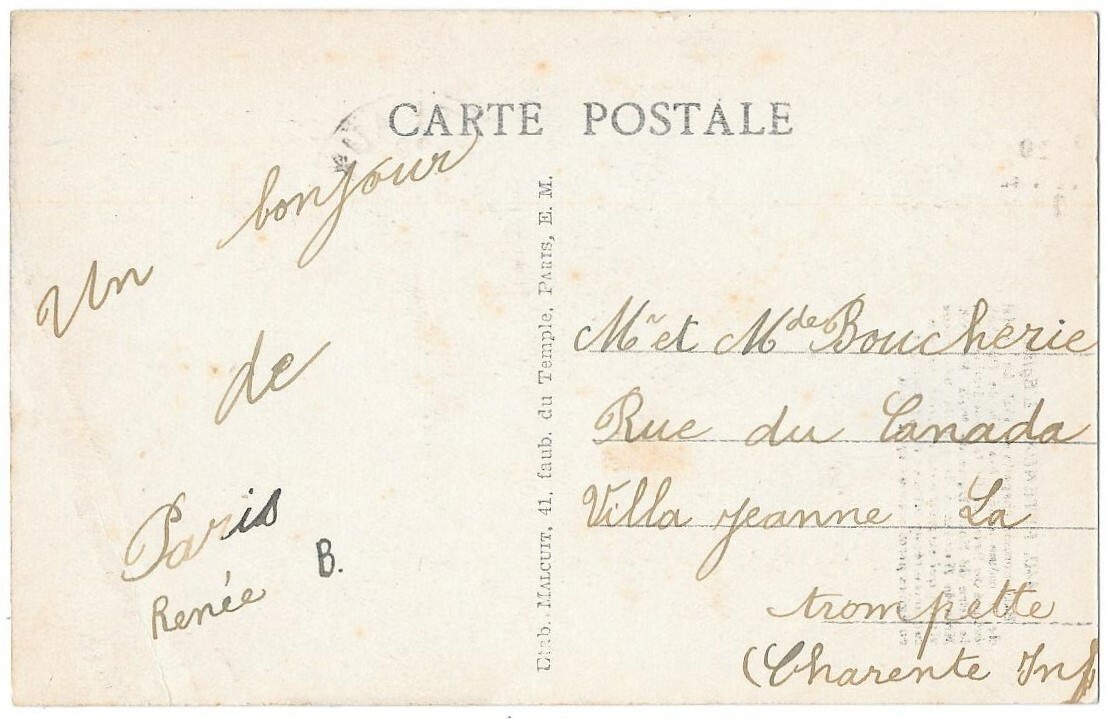 CARTE POSTALE
Un bonjour
de
Paris
Renée B.
Etab. MALCUIT, 41, faub. du Temple, PARIS, E. M.
Mr et Mde Boucherie
Rue du Canada
Villa jeanne La
trompette
(Charente Inf